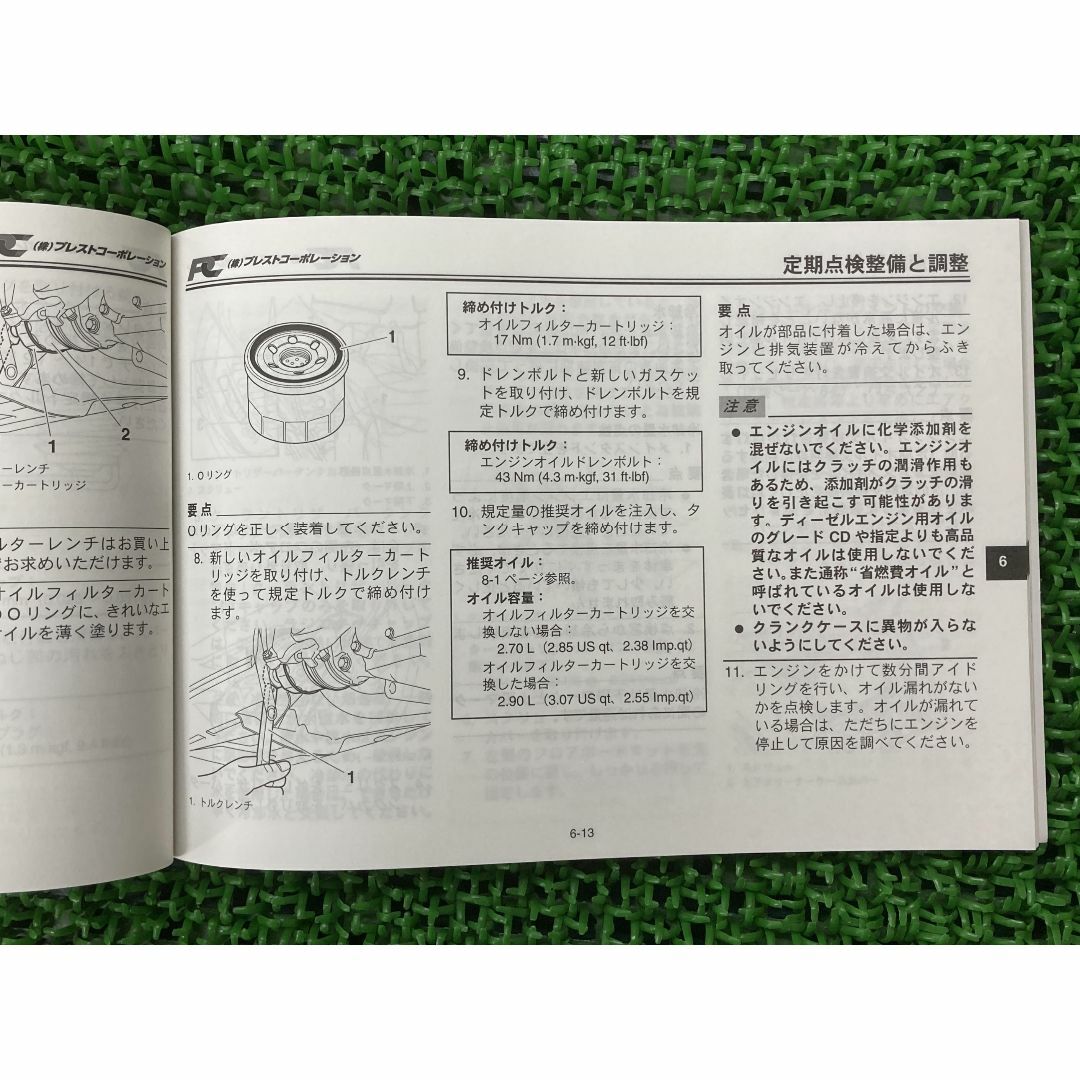 (株)プレストコーポレーション
1
2
ーレンチ
ーカートリッジ
ルターレンチはお買い上
お求めいただけます。
オイルフィルターカート
Oリングに、きれいなエ
イルを薄く塗ります。
(株)プレストコーポレーション
定期点検整備と調整
1
1. Oリング
要点
Oリングを正しく装着してください。
8. 新しいオイルフィルターカート
リッジを取り付け、トルクレンチ
を使って規定トルクで締め付け
ます。
1
1. トルクレンチ
締め付けトルク：
オイルフィルターカートリッジ：
17 Nm (1.7 m·kgf, 12 ft·lbf)
9. ドレンボルトと新しいガスケッ
トを取り付け、ドレンボルトを規
定トルクで締め付けます。
締め付けトルク：
エンジンオイルドレンボルト：
43 Nm (4.3 m·kgf, 31 ft·lbf)
10. 規定量の推奨オイルを注入し、タ
ンクキャップを締め付けます。
推奨オイル：
8-1 ページ参照。
オイル容量：
オイルフィルターカートリッジを交
換しない場合：
2.70 L（2.85 US qt、2.38 Imp.qt）
オイルフィルターカートリッジを交
換した場合：
2.90 L（3.07 US qt、2.55 Imp.qt）
要点
オイルが部品に付着した場合は、エン
ジンと排気装置が冷えてからふき
取ってください。
注意
● エンジンオイルに化学添加剤を
混ぜないでください。エンジンオ
イルにはクラッチの潤滑作用も
あるため、添加剤がクラッチの滑
りを引き起こす可能性がありま
す。ディーゼルエンジン用オイル
のグレード CD や指定よりも高品
質なオイルは使用しないでくだ
さい。また通称“省燃費オイル”と
呼ばれているオイルは使用しな
いでください。
● クランクケースに異物が入らな
いようにしてください。
11. エンジンをかけて数分間アイド
リングを行い、オイル漏れがない
かを点検します。オイルが漏れて
いる場合は、ただちにエンジンを
停止して原因を調べてください。
6
6-13